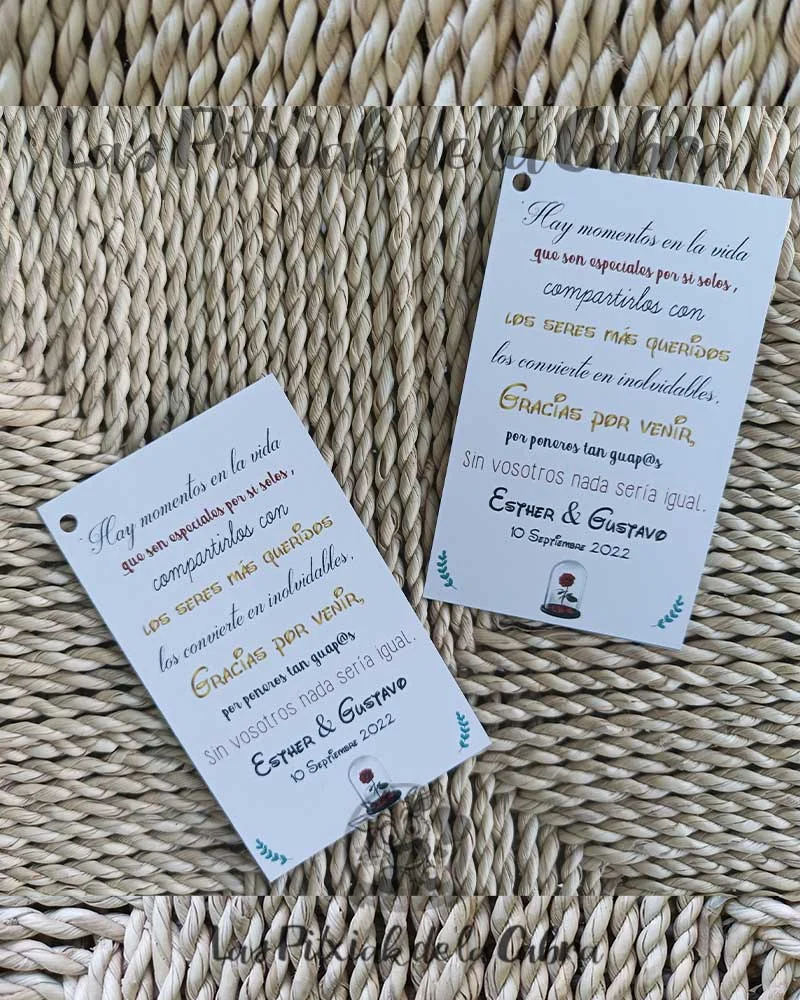 Las Pitxiak de la Cabra
"Hay momentos en la vida
que son especiales por si solos,
compartirlos con
los seres más queridos
los convierte en inolvidables.
Gracias por venir,
por poneros tan guap@s
Sin vosotros nada sería igual.
Esther & Gustavo
10 Septiembre 2022
"Hay momentos en la vida
que son especiales por si solos,
compartirlos con
los seres más queridos
los convierte en inolvidables.
Gracias por venir,
por poneros tan guap@s
Sin vosotros nada sería igual.
Esther & Gustavo
10 Septiembre 2022
Las Pitxiak de la Cabra